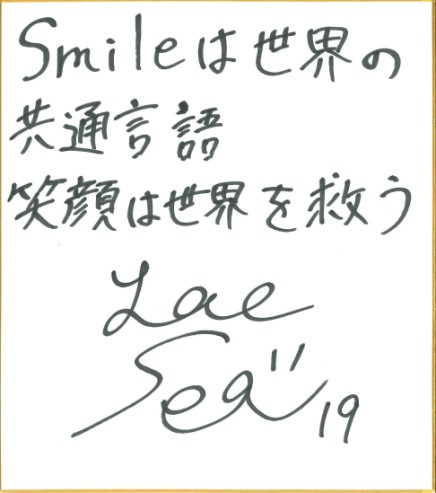 Smileは世界の
共通言語
笑顔は世界を救う
Lae
Sea"
19